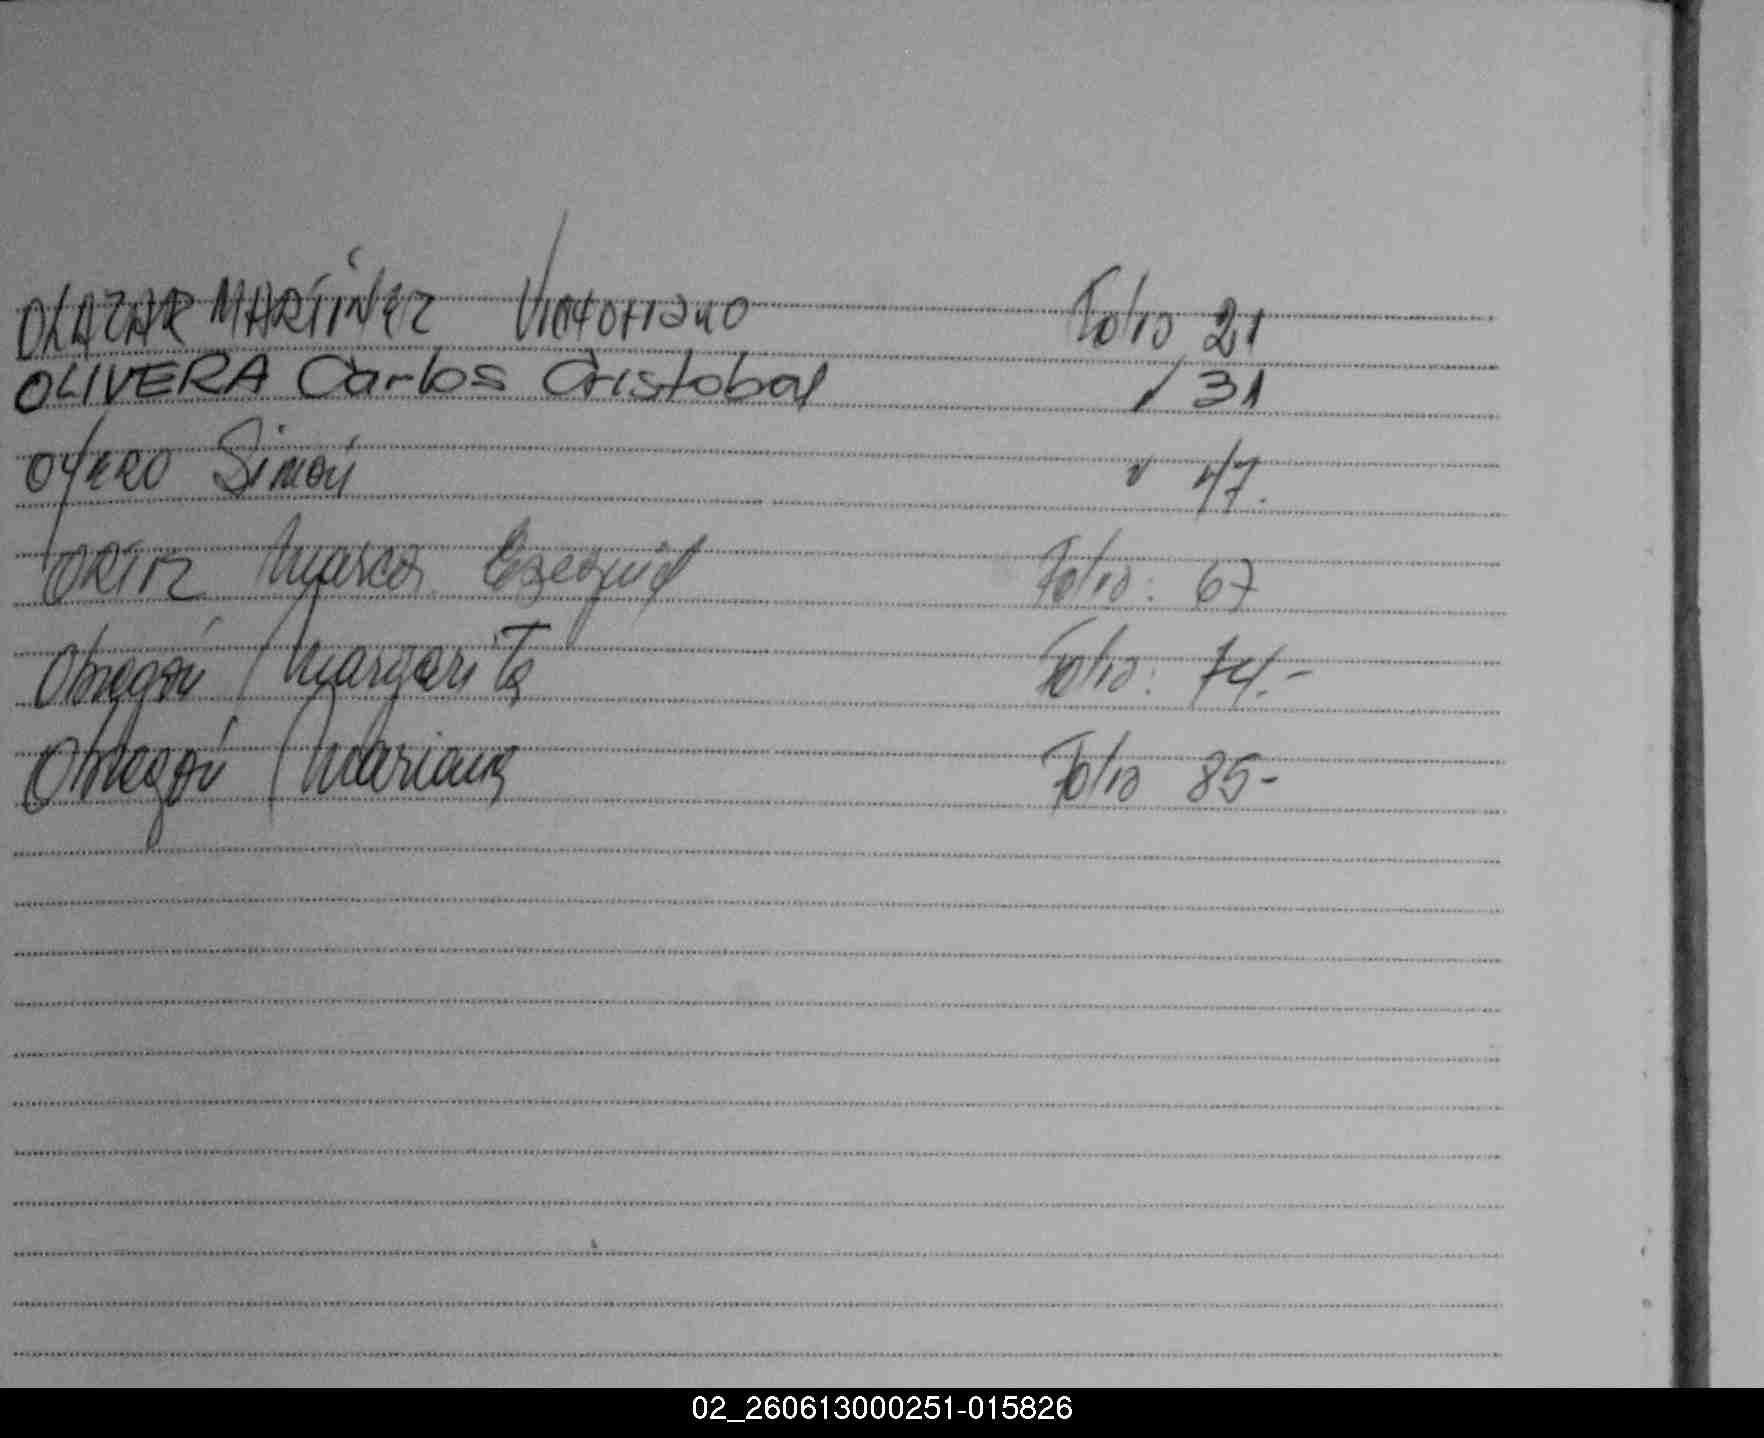 OLAZAR MARTÍNEZ Victoriano Folio 21
OLIVERA Carlos Cristobal " 31
OYERO Simón " 47.
ORTIZ Marcos Ezequiel Folio: 67
Obregón Margarita Folio: 74.-
Obregón Mariana Folio 85-
02_260613000251-015826